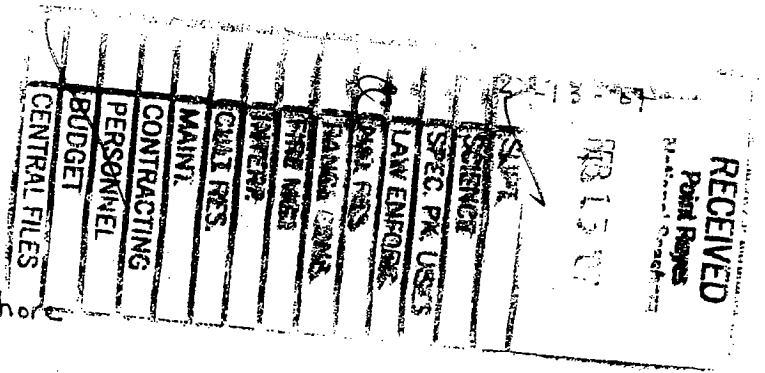 RECEIVED
Point Reyes
National Seashore
FEB 15
SUPT.
SCIENCE
SPEC. PK. USES
LAW ENFORC.
RANGE CONS.
FIRE MGT.
INTERP.
CULT. RES.
MAINT.
CONTRACTING
PERSONNEL
BUDGET
CENTRAL FILES
hore